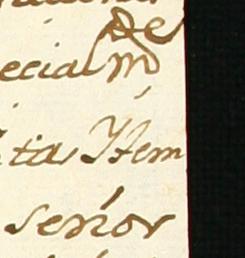 de
ecialm
ta Ytem
señor